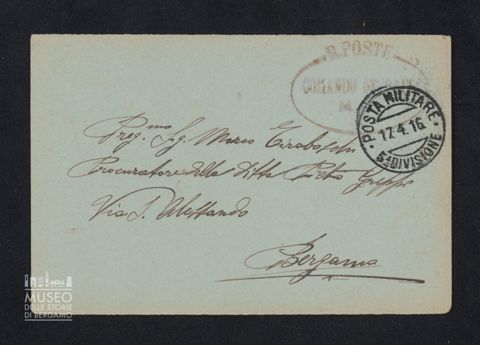 R. POSTE
COMANDO
POSTA MILITARE
17.4.16
5ª DIVISIONE
Preg.mo Sig. Marco Tiraboschi
Procuratore della Ditta Pietro
Via S. Alessandro
Bergamo
MUSEO
DELLE STORIE
DI BERGAMO